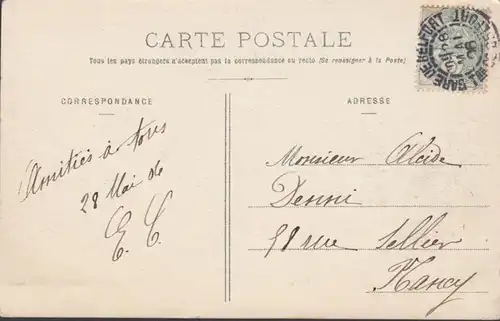 CARTE POSTALE
Tous les pays étrangers n'acceptent pas la correspondance au recto (Se renseigner à la Poste)
CORRESPONDANCE
Amitiés à tous
28 Mai 06
E. C.
ADRESSE
Monsieur Alcide
Denni
58 rue Sellier
Nancy
GARE DE BELFORT